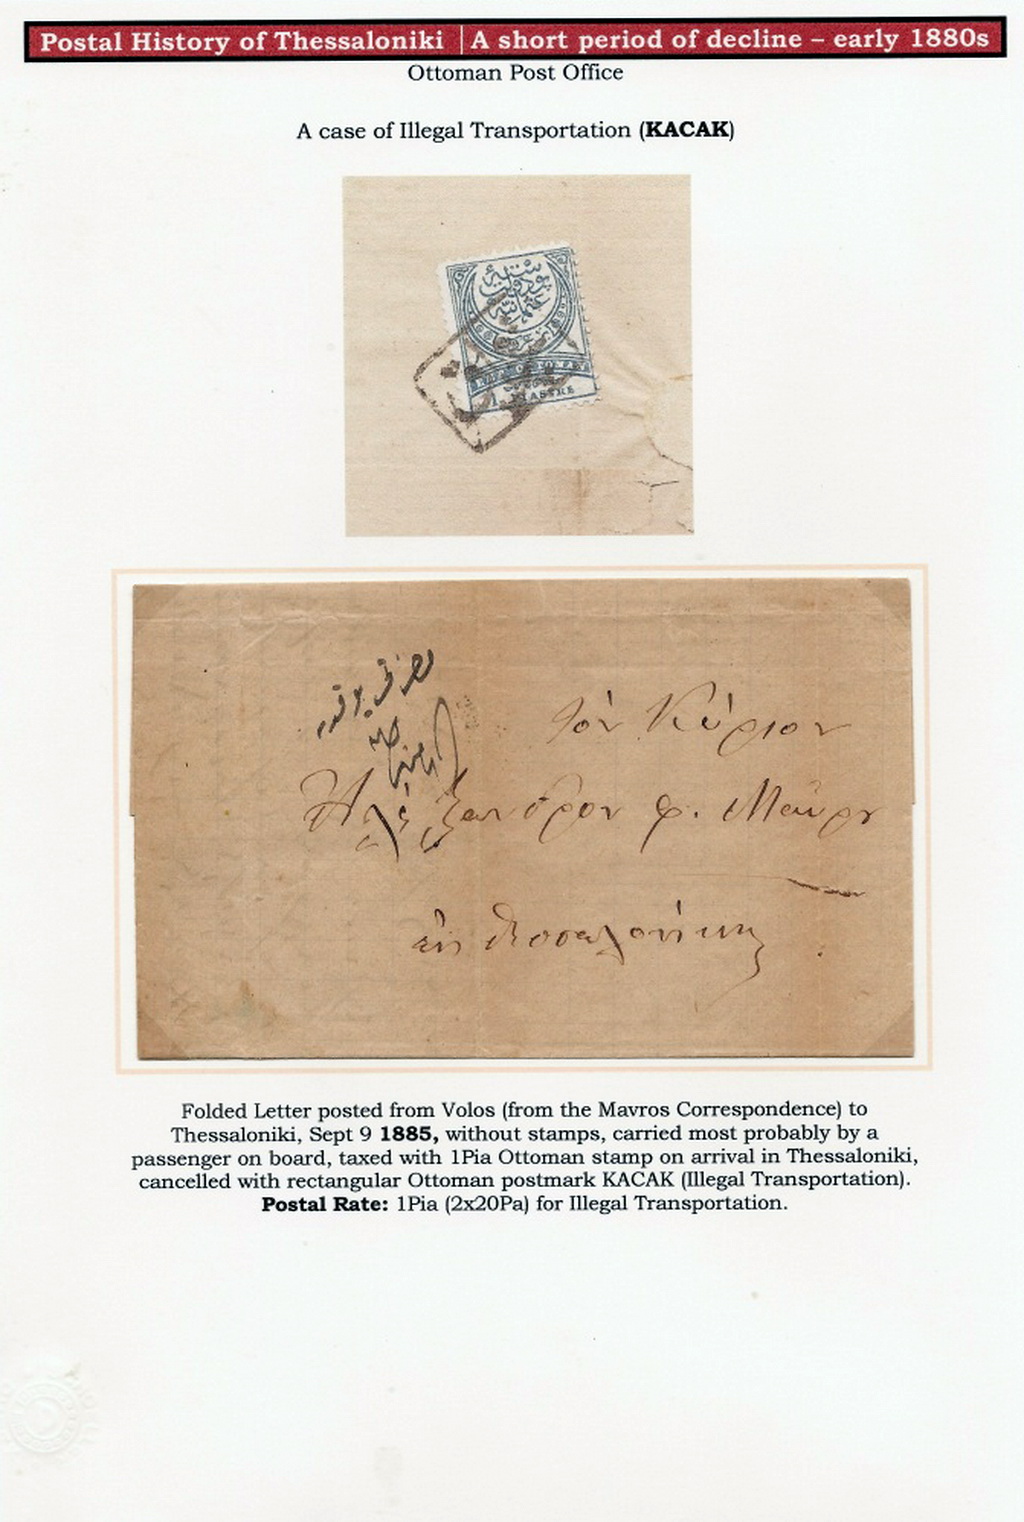 Postal History of Thessaloniki | A short period of decline – early 1880s
Ottoman Post Office
A case of Illegal Transportation (KACAK)
1 PIASTRE
τὸν Κύριον
Ἀλέξανδρον φ. Μαῦρον
εἰς Θεσσαλονίκην
Folded Letter posted from Volos (from the Mavros Correspondence) to
Thessaloniki, Sept 9 1885, without stamps, carried most probably by a
passenger on board, taxed with 1Pia Ottoman stamp on arrival in Thessaloniki,
cancelled with rectangular Ottoman postmark KACAK (Illegal Transportation).
Postal Rate: 1Pia (2x20Pa) for Illegal Transportation.